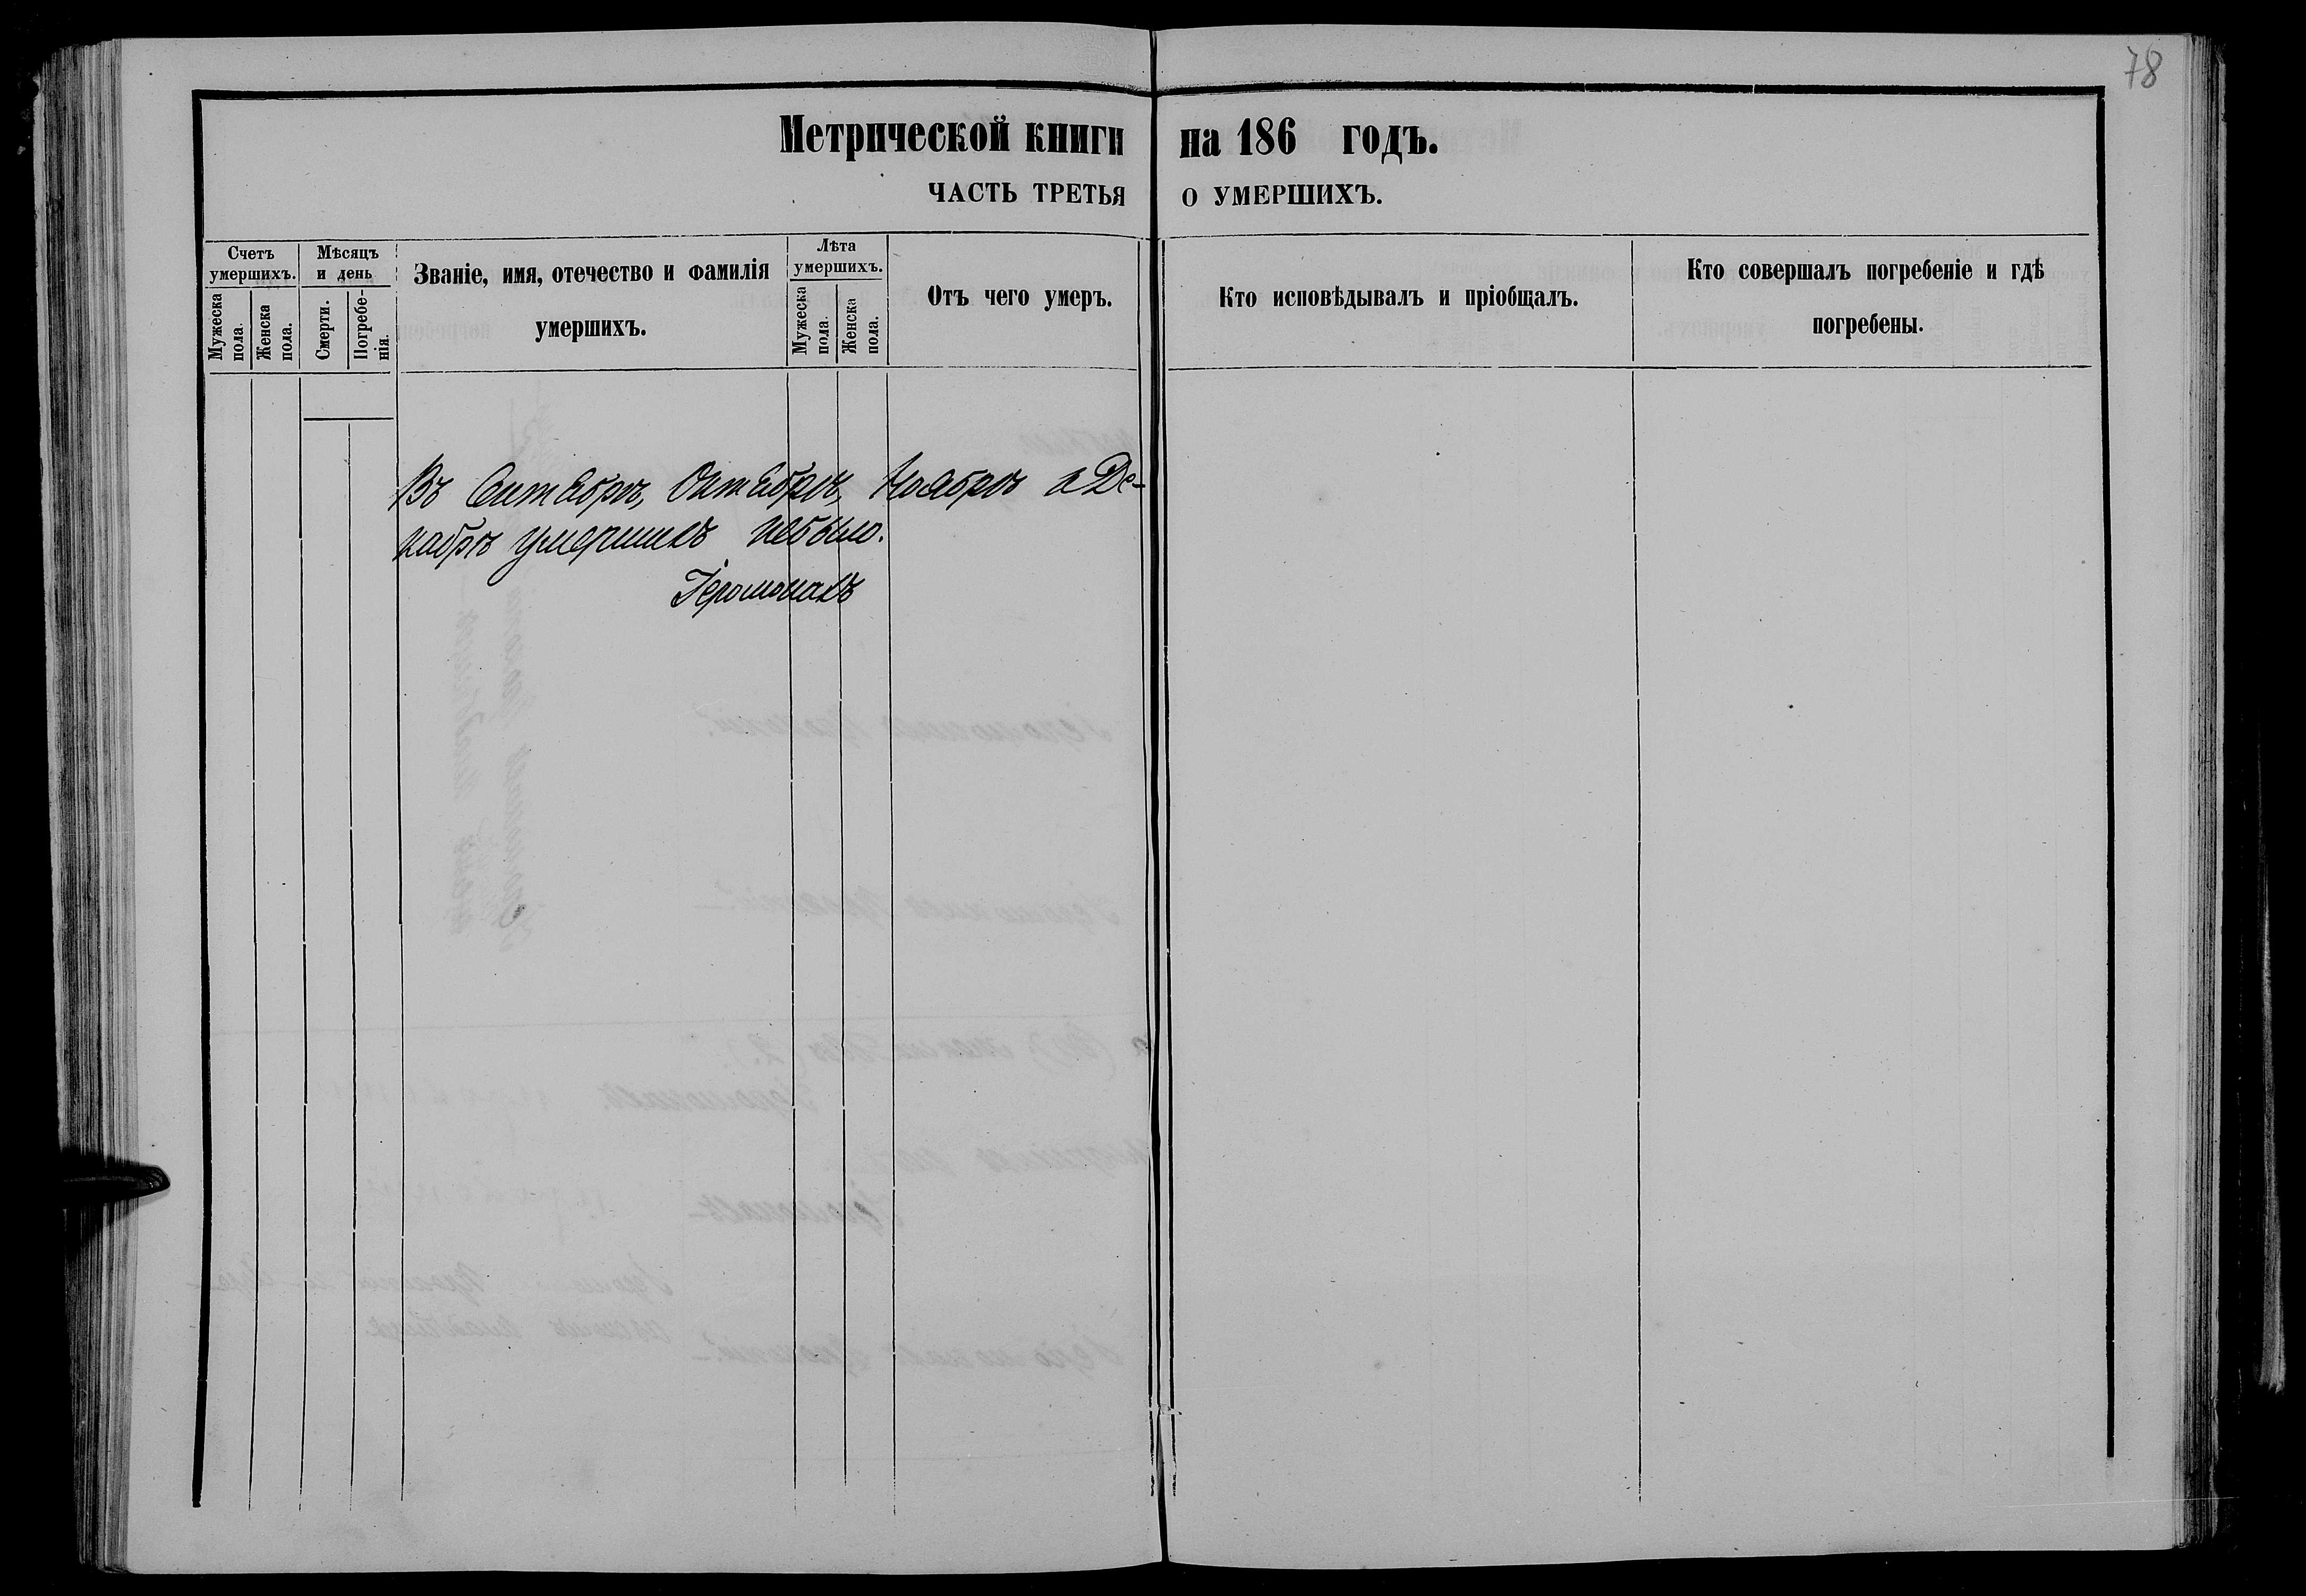 78
Метрической книги на 186 годъ.
ЧАСТЬ ТРЕТЬЯ О УМЕРШИХЪ.
Счетъ
умершихъ.
Мужеска
пола.
Женска
пола.
Мѣсяцъ
и день
Смерти.
Погребе-
нія.
Званіе, имя, отечество и фамилія
умершихъ.
Лѣта
умершихъ.
Мужеска
пола.
Женска
пола.
Отъ чего умеръ.
Кто исповѣдывалъ и пріобщалъ.
Кто совершалъ погребеніе и гдѣ
погребены.
Въ Сентябрѣ, Октябрѣ, Ноябрѣ и Де-
кабрѣ умершихъ небыло.
Іеромонахъ